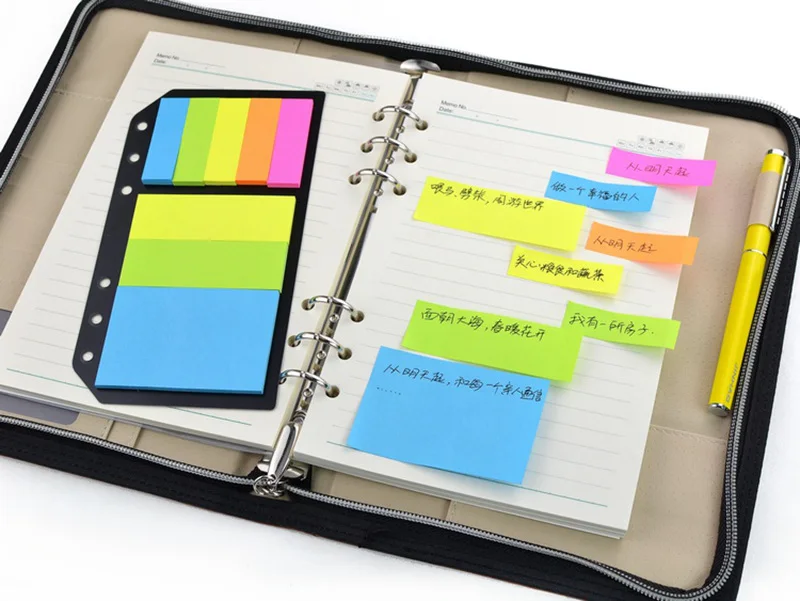 Memo No.
Date:
Memo No.
Date:
从明天起
做一个幸福的人
喂马、劈柴，周游世界
从明天起
关心粮食和蔬菜
我有一所房子.
面朝大海，春暖花开
从明天起，和每一个亲人通信
......